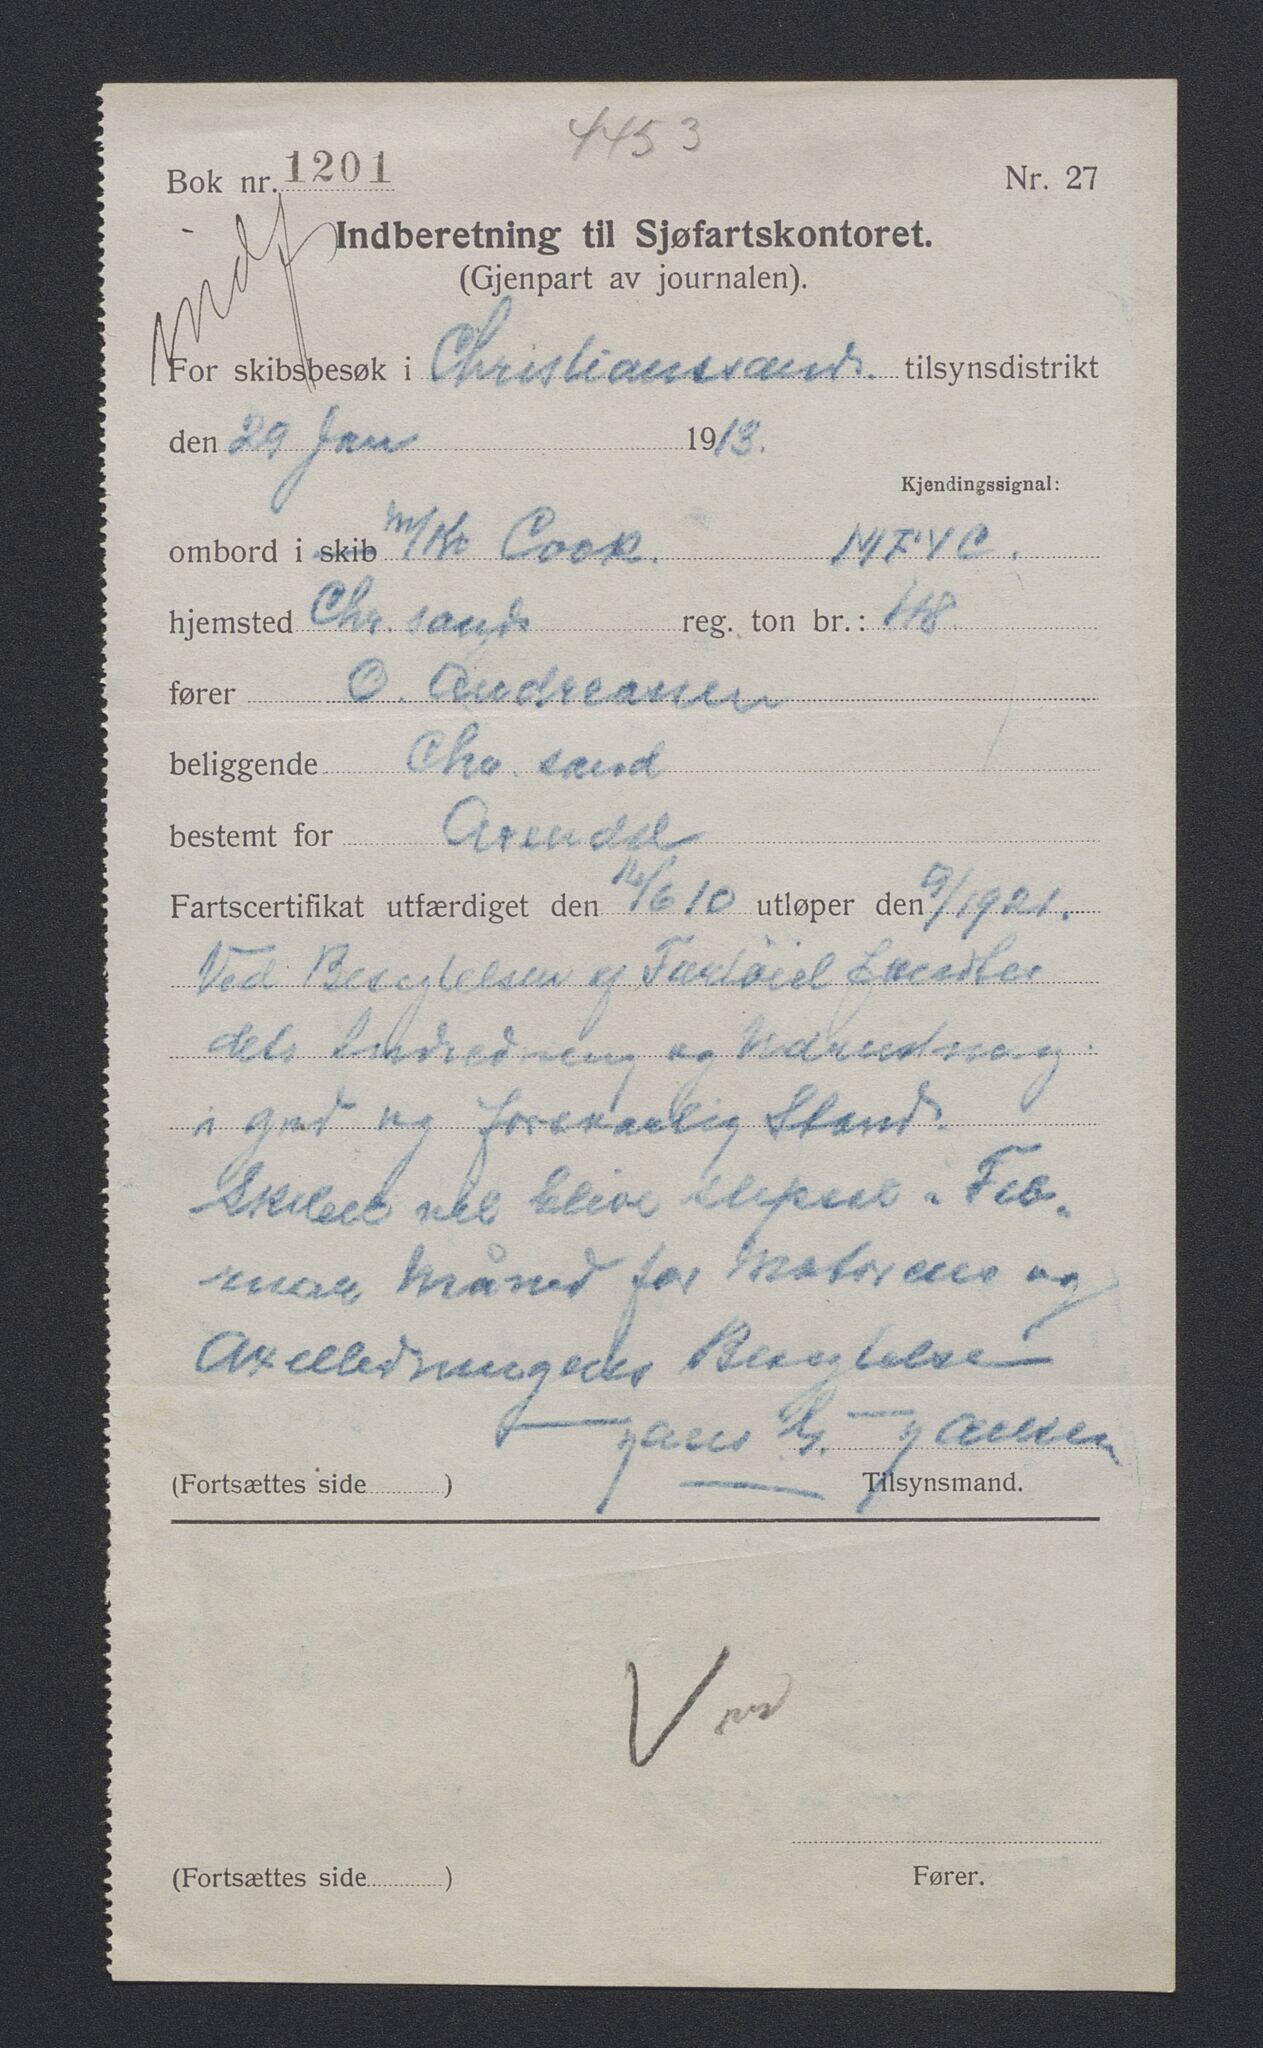 4453
Bok nr. 1201 Nr. 27
indf
Indberetning til Sjøfartskontoret.
(Gjenpart av journalen).
For skibsbesøk i Christianssand. tilsynsdistrikt
den 29 Jan 1913.
Kjendingssignal:
ombord i skib m/Kt Cook. MFYC.
hjemsted Chr. sand reg. ton br.: 118.
fører O. Andreasen
beliggende Chr. sand
bestemt for Arendal
Fartscertifikat utfærdiget den /6 10 utløper den 9/1921.
Ved Besigtelsen af Fartöiet fandtes
dets Indredning og Udrustning
i god og forsvarlig Stand.
Skibet vil blive slipsat i Feb-
ruar Måned for Motorens og
Axelledningens Besigtelse
Hans G. Hansen
(Fortsættes side ) Tilsynsmand.
V
(Fortsættes side ) Fører.